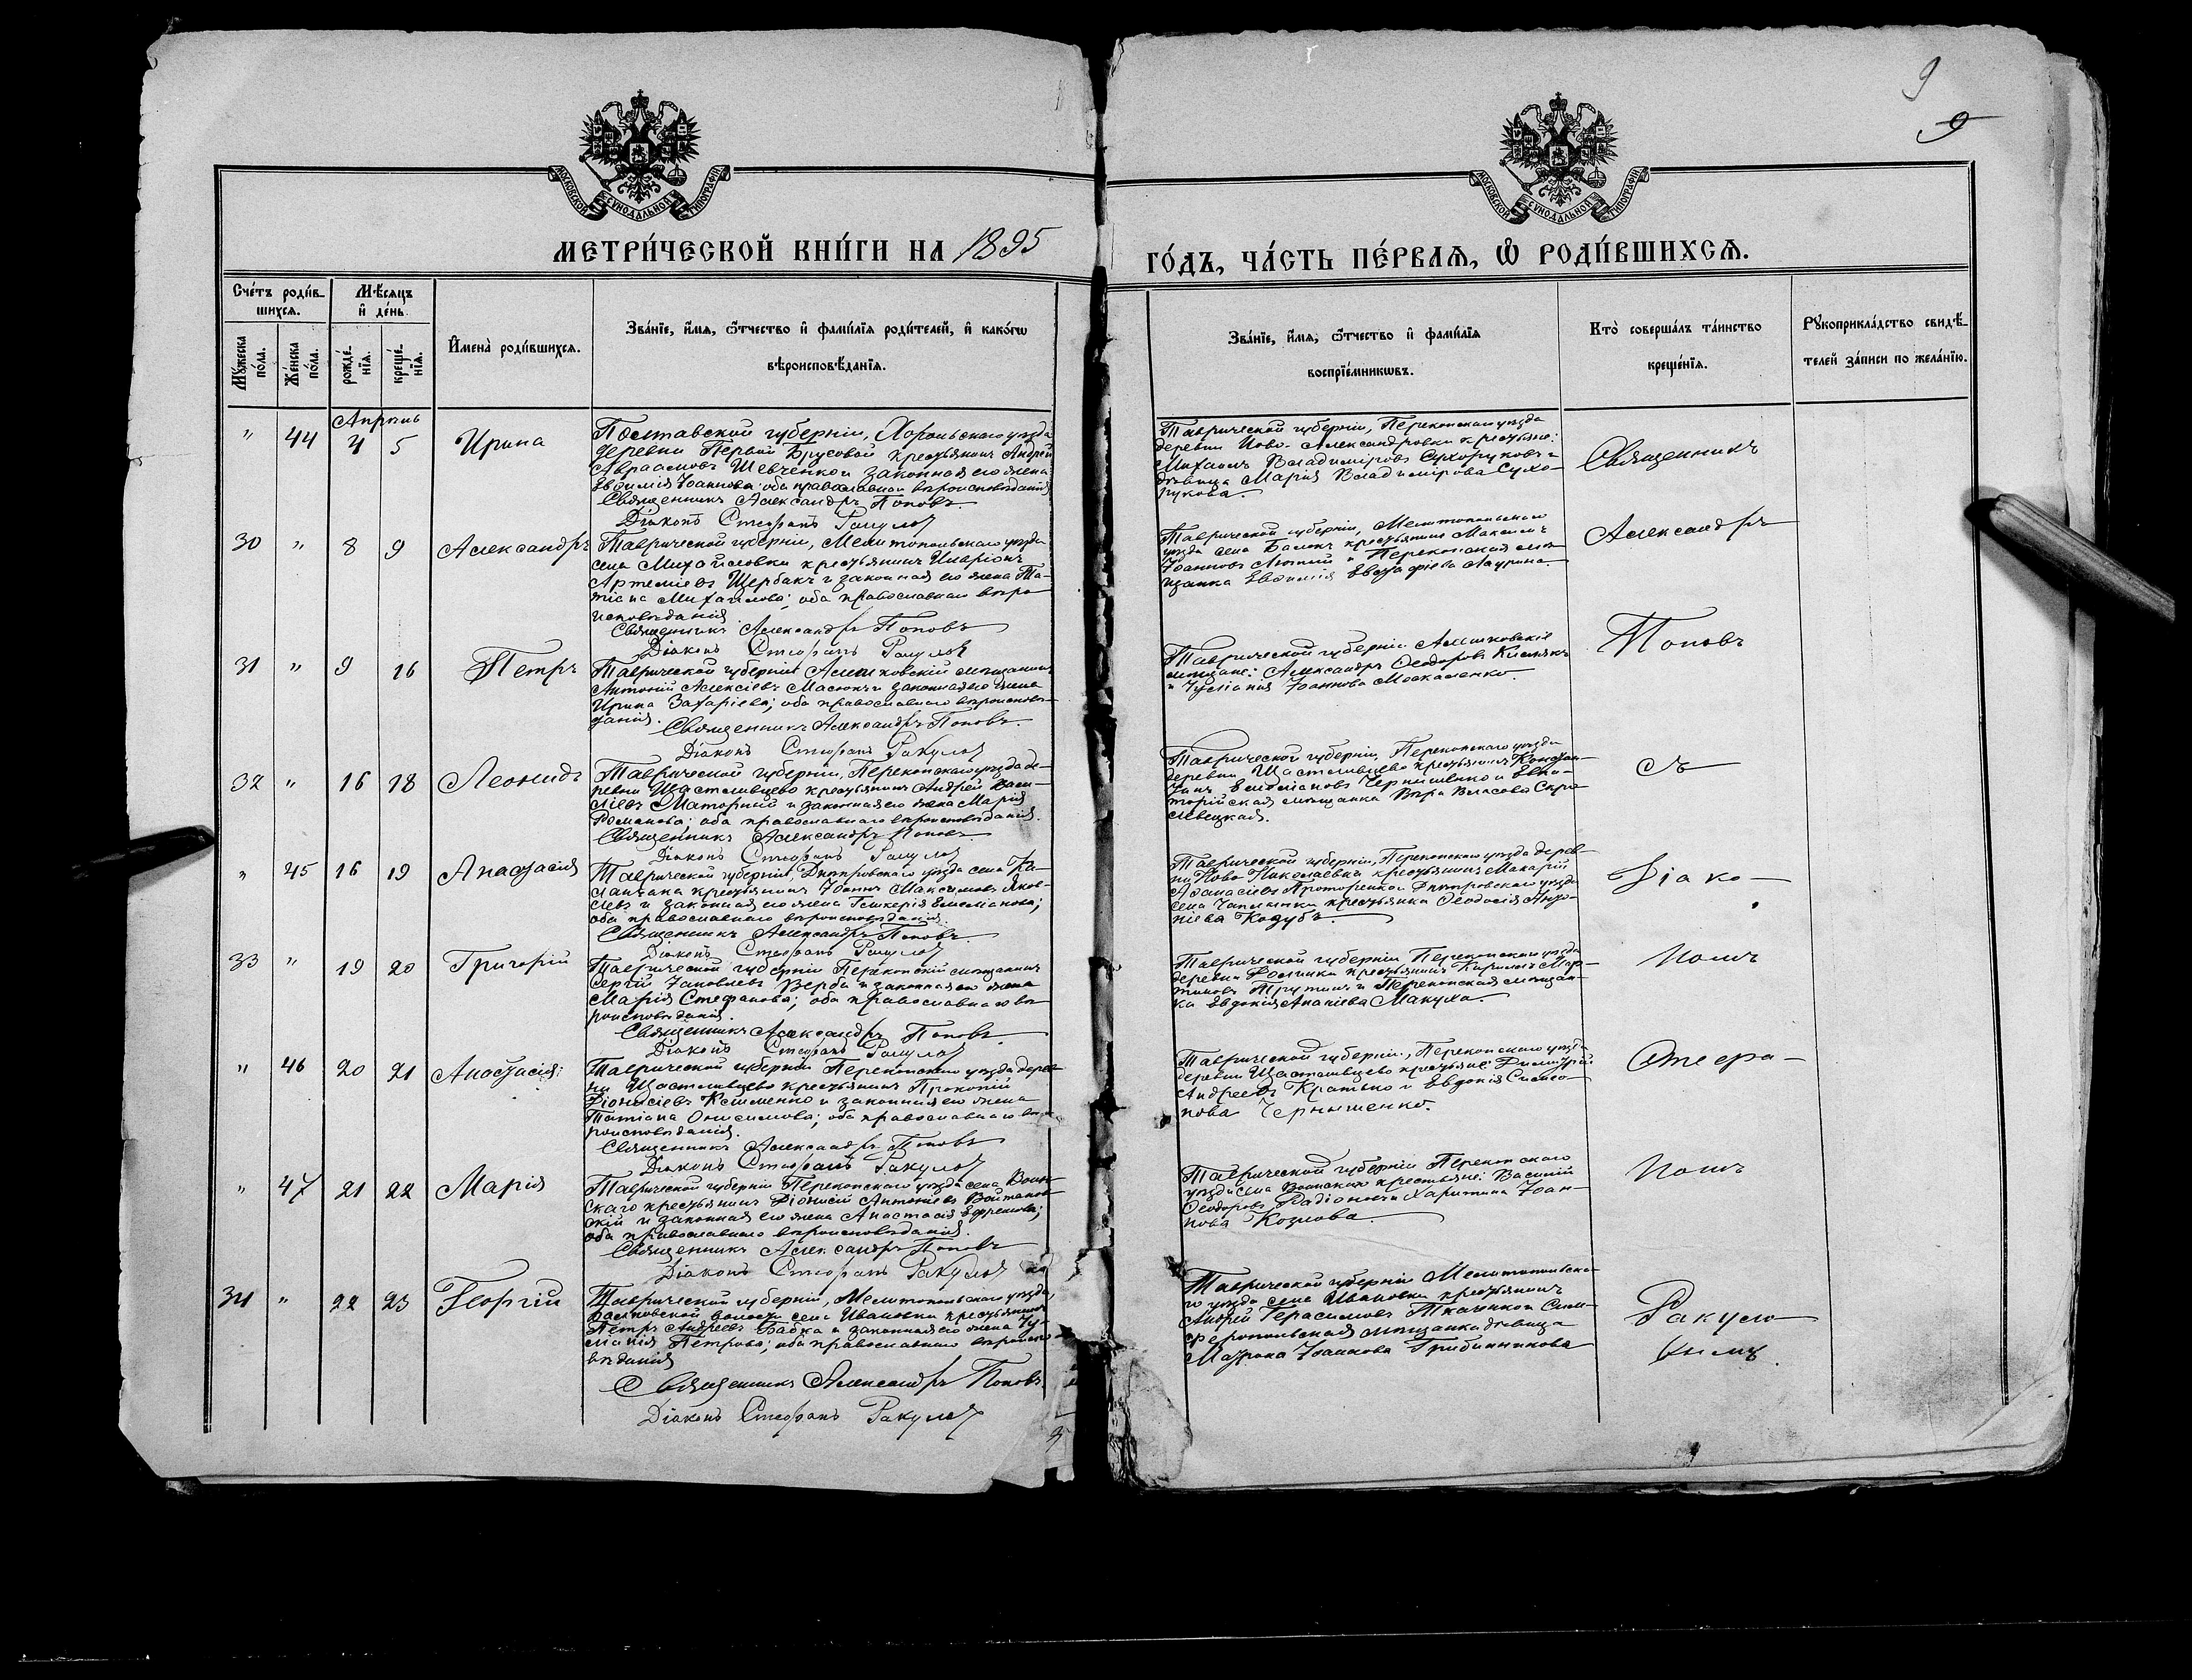 9
9
МОСКОВСКОЙ СѴНОДАЛЬНОЙ ТИПОГРАФІИ
МОСКОВСКОЙ СѴНОДАЛЬНОЙ ТИПОГРАФІИ
МЕТРИ́ЧЕСКОЙ КНИ́ГИ НА 1895
ГО́ДЪ, ЧА́СТЬ ПЕ́РВАЯ, Ѽ РОДИ́ВШИХСЯ.
Сче́тъ роди́в-
шихся.
Мѣ́сяцъ
и де́нь.
Му́жеска по́ла.
Же́нска по́ла.
рожде́-нїя.
креще́-нїя.
Имена̀ роди́вшихся.
Зва́нїе, и́мя, ѿтчество и фами́лїя роди́телей, и како́гѡ
вѣроисповѣ́данїя.
Зва́нїе, и́мя, ѿтчество и фами́лїя
воспрїе́мникѡвъ.
Кто̀ соверша́лъ та́инство
креще́нїя.
Рукоприкла́дство свидѣ́-
телей за́писи по жела́нїю.
Апрѣль
" 44 4 5 Ирина
Полтавской губерніи, Хорольскаго уѣзда
деревни Первой Брусовой крестьянинъ Андрей
Авраамовъ Шевченко и законная его жена
Евфимія Іоаннова; оба православнаго вѣроисповѣданія
Священникъ Александръ Поповъ.
Діаконъ Стефанъ Ракулов
Таврической губерніи, Перекопскаго уѣзда
деревни Ново-Александровки крестьяне:
Михаилъ Владиміровъ Сухоруковъ и
дѣвица Марія Владимірова Сухо-
рукова.
Священникъ
30 " 8 9 Александръ
Таврической губерніи, Мелитопольскаго уѣзда
села Михайловки крестьянинъ Иларіонъ
Артеміевъ Щербакъ и законная его жена Та-
тіана Михаилова; оба православнаго вѣро-
исповѣданія
Священникъ Александръ Поповъ
Діаконъ Стефанъ Ракулов
Таврической губерніи, Мелитопольскаго
уѣзда села Балокъ крестьянинъ Максимъ
Іоанновъ Лютый и Перекопская мѣ-
щанка Евфимія Евстафіева Лаурина
Александръ
31 " 9 16 Петръ
Таврической губерніи Алешковскій мѣщанинъ
Антоній Алексіевъ Масюкъ и законная его жена
Ирина Захаріева; оба православнаго вѣроисповѣ-
данія.
Священникъ Александръ Поповъ.
Діаконъ Стефанъ Ракулов
Таврической губерніи Алешковскіе
мѣщане: Александръ Ѳеодоровъ Кислякъ
и Іуліанія Іоаннова Москаленко.
Поповъ
32 " 16 18 Леонидъ
Таврической губерніи, Перекопскаго уѣзда де-
ревни Щастливцево крестьянинъ Андрей Васи-
ліевъ Маторный и законная его жена Марія
Романова; оба православнаго вѣроисповѣданія.
Священникъ Александръ Поповъ
Діаконъ Стефанъ Ракулов
Таврической губерніи, Перекопскаго уѣзда
деревни Щастливцево крестьянинъ Констан-
тинъ Емиліановъ Чернышенко и Евпа-
торійская мѣщанка Вѣра Власова
съ
" 45 16 19 Анастасія
Таврической губерніи, Днѣпровскаго уѣзда села Ка-
ланчака крестьянинъ Іоаннъ Максимовъ Яков-
левъ и законная его жена Гликерія Емеліанова;
оба православнаго вѣроисповѣданія.
Священникъ Александръ Поповъ
Діаконъ Стефанъ Ракулов
Таврической губерніи, Перекопскаго уѣзда дерев-
ни Ново Николаевки крестьянинъ Макарій
Аѳанасіевъ Проторенко и Днѣпровскаго уѣзда
села Чаплинки крестьянка Ѳеодосія Анто-
ніева Козубъ.
Діако-
33 " 19 20 Григорій
Таврической губерніи Перекопскій мѣщанинъ
Сергій Іаковлевъ Верба и законная его жена
Марія Стефанова; оба православнаго вѣ-
роисповѣданія.
Священникъ Александръ Поповъ.
Діаконъ Стефанъ Ракулов
Таврической губерніи, Перекопскаго уѣзда
деревни крестьянинъ Кириллъ Мар-
тиновъ и Перекопская мѣщан-
ка Евдокія Ананіева Макуха.
номъ
" 46 20 21 Анастасія
Таврической губерніи Перекопскаго уѣзда дерев-
ни Щастливцево крестьянинъ Прокопій
Діонисіевъ Клименко и законная его жена
Татіана Онисимова; оба православнаго вѣ-
роисповѣданія.
Священникъ Александръ Поповъ
Діаконъ Стефанъ Ракулов
Таврической губерніи, Перекопскаго уѣзда
деревни Щастливцево крестьяне: Димитрій
Андреевъ Кратько и Евдокія Симео-
нова Чернышенко.
Стефа-
" 47 21 22 Марія
Таврической губерніи Перекопскаго уѣзда села Воин-
скаго крестьянинъ Діонисій Антоніевъ Войтанов-
скій и законная его жена Анастасія Ефремова;
оба православнаго вѣроисповѣданія.
Священникъ Александръ Поповъ
Діаконъ Стефанъ Ракулов
Таврической губерніи Перекопскаго
уѣзда села Воинскаго крестьяне: Василій
Ѳеодоровъ и Харитина Іоан-
нова Козлова.
номъ
34 " 22 23 Георгій
Таврической губерніи, Мелитопольскаго уѣзда,
волости села Ивановки крестьянинъ
Петръ Андреевъ Бабка и законная его жена Іу-
ліанія Петрова; оба православнаго вѣроиспо-
вѣданія
Священникъ Александръ Поповъ.
Діаконъ Стефанъ Ракулов
Таврической губерніи Мелитопольска-
го уѣзда села Ивановки крестьянинъ
Андрей Герасимовъ Ткаченко и Сим-
феропольская мѣщанка дѣвица
Матрона Іоаннова Грибинникова
Ракуло-
вымъ.